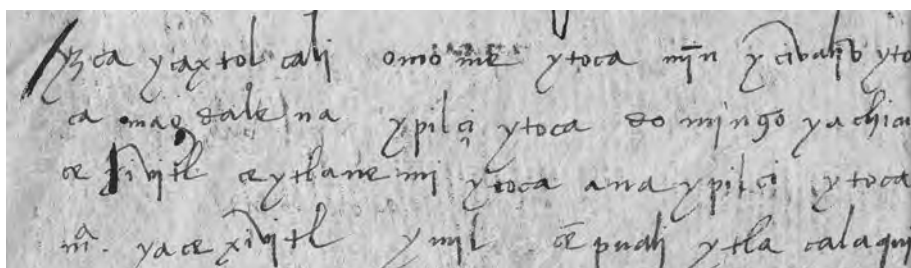 yzca ycaxtol cali omome ytoca min yçivahv yto
ca magdalena ypilçi ytoca domingo yachicu
ce xivitl ceytlanemi ytoca ana ypilçi ytoca
ma. yacexivitl ymil cepuali ytlacalaqui